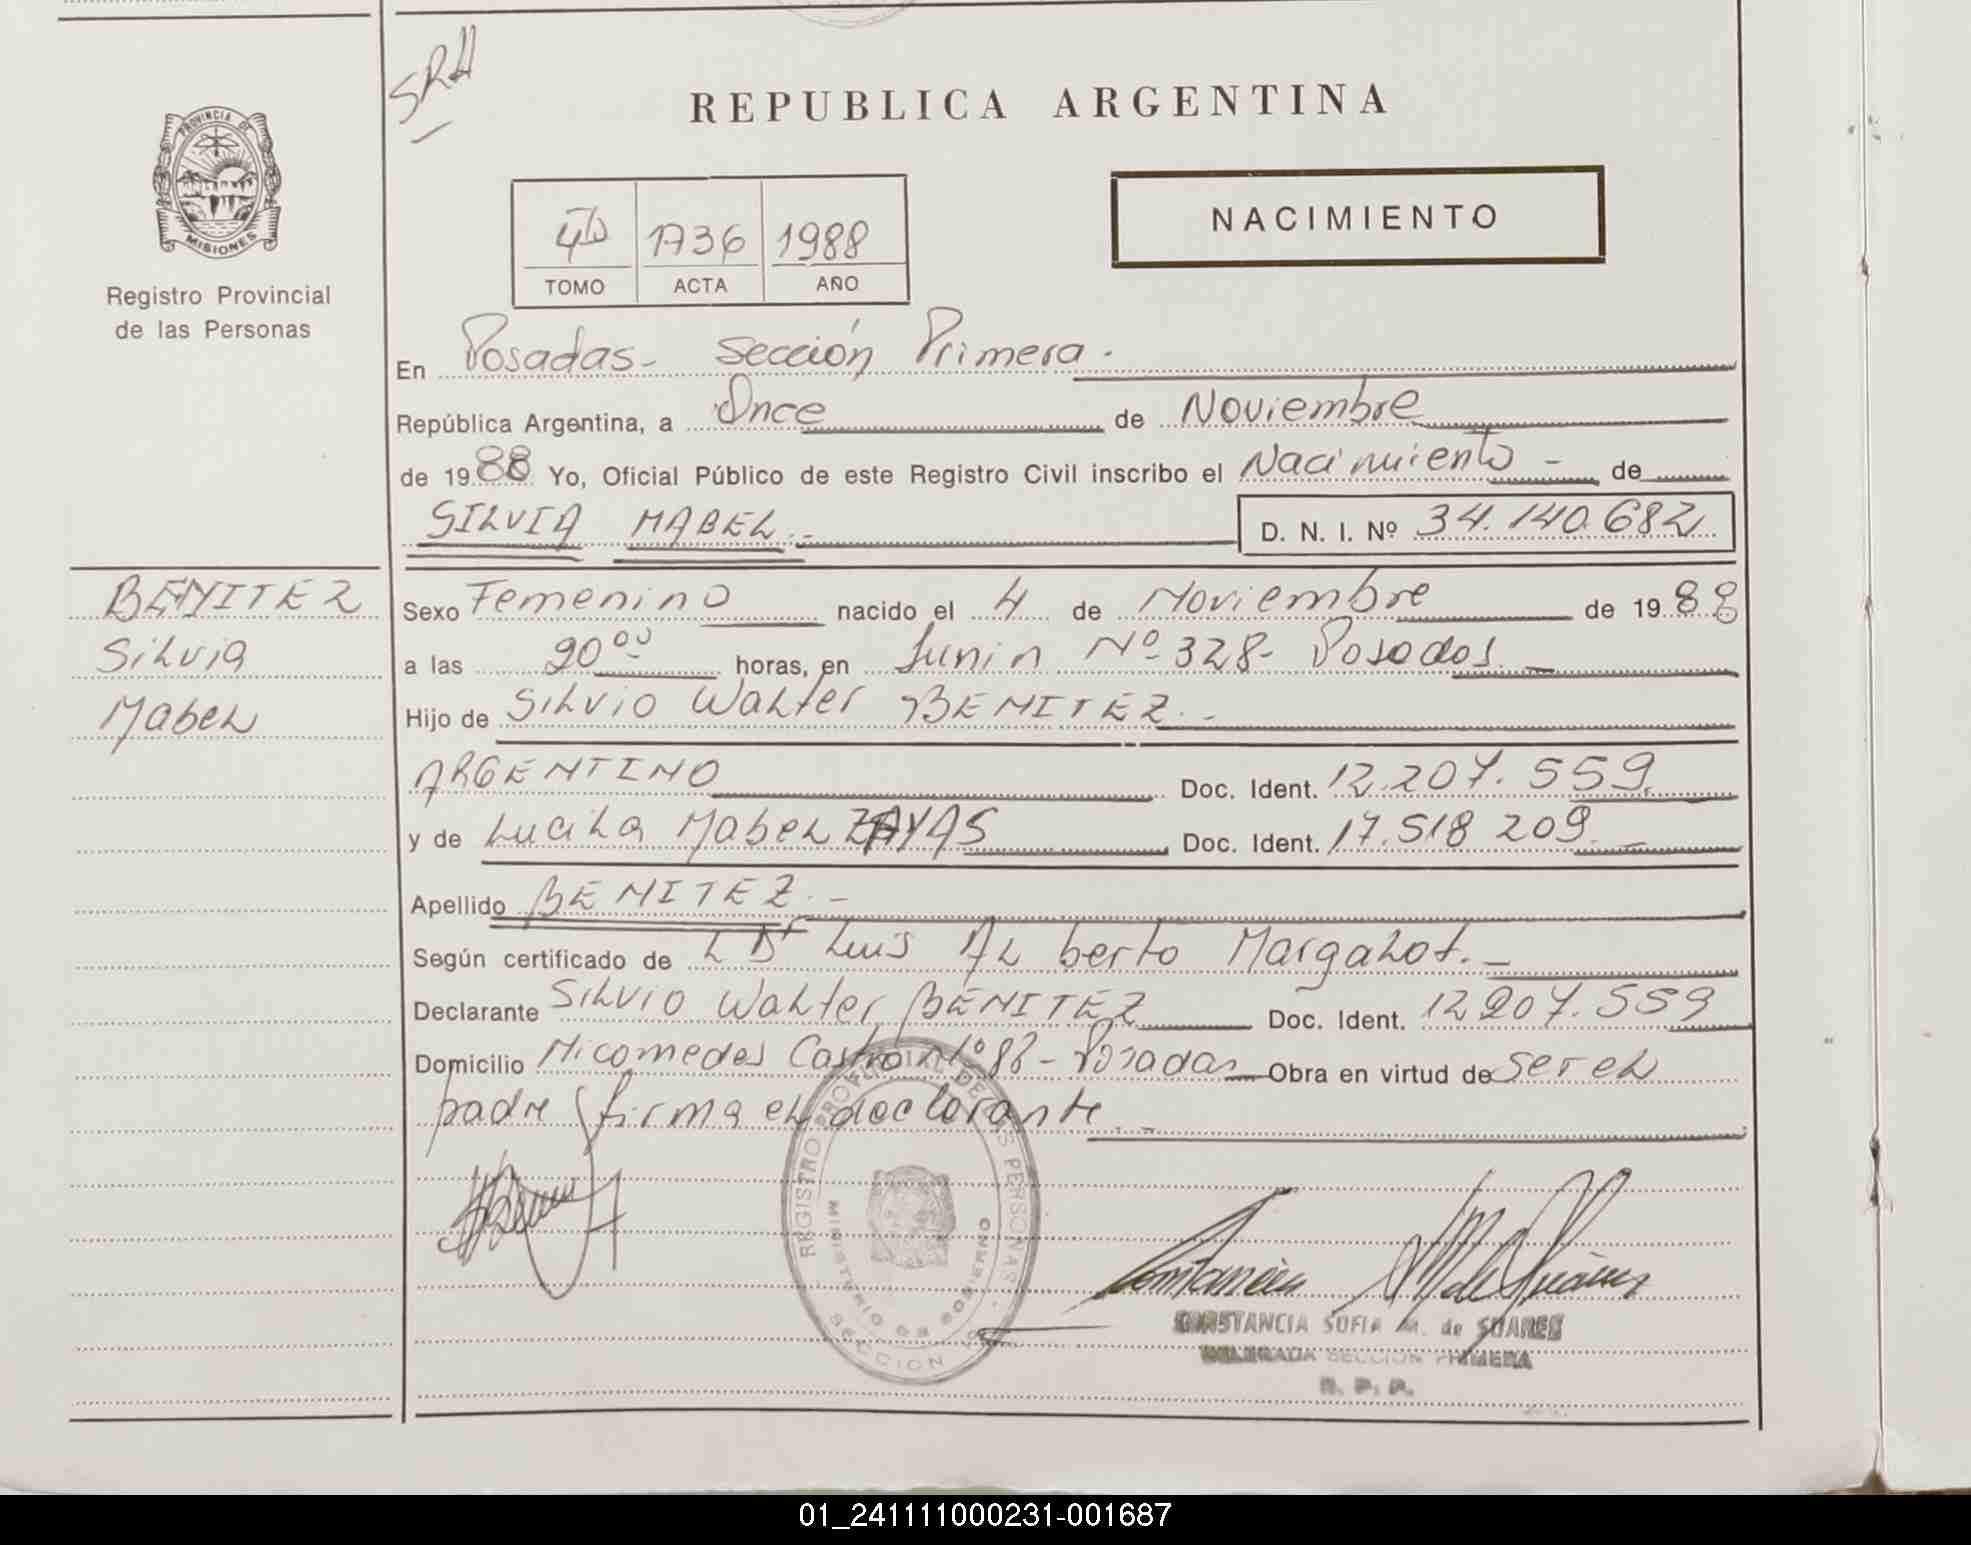 SRH
REPUBLICA ARGENTINA
PROVINCIA DE
MISIONES
Registro Provincial
de las Personas
4to 1736 1988
TOMO ACTA AÑO
NACIMIENTO
En Posadas - Sección Primera.
República Argentina, a Once de Noviembre
de 1988 Yo, Oficial Público de este Registro Civil inscribo el Nacimiento - de
SILVIA MABEL.- D. N. I. Nº 34.140.682
BENITEZ
Silvia
Mabel
Sexo Femenino nacido el 4 de Noviembre de 1988
a las 20 00 horas, en Junin Nº 328- Posadas. -
Hijo de Silvio Walter BENITEZ.-
ARGENTINO Doc. Ident. 12.207.559.
y de Lucila Mabel ZAYAS Doc. Ident. 17.518 209. -
Apellido BENITEZ.-
Según certificado de Dr Luis Alberto Margalot.-
Declarante Silvio Walter BENITEZ Doc. Ident. 12207.559
Domicilio Nicomedes Castro Nº 86 - Posadas Obra en virtud de ser el
padre firma el declarante. -
REGISTRO PROVINCIAL DE LAS PERSONAS
MINISTERIO DE GOBIERNO
SECCION
Constancia M de Suáres
CONSTANCIA SOFIA M. de SUARES
DELEGADA SECCION PRIMERA
R. P. P.
01_241111000231-001687